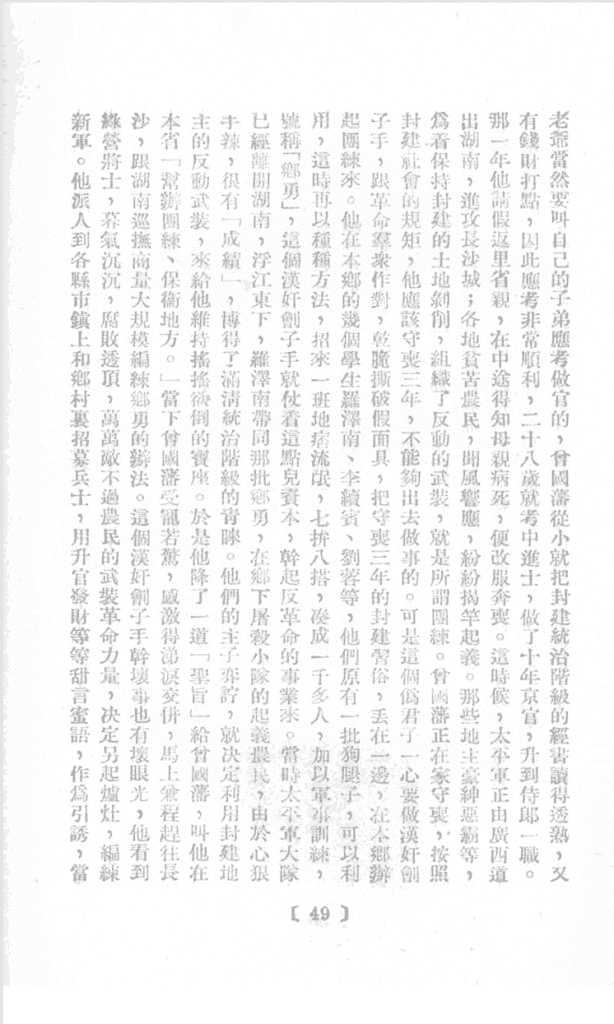 老爺當然要叫自己的子弟應考做官的，曾國藩從小就把封建統治階級的經書讀得透熟，又
有錢財打點，因此應考非常順利，二十八歲就考中進士，做了十年京官，升到侍郎一職。
那一年他請假返里省親，在中途得知母親病死，便改服奔喪。這時候，太平軍正由廣西道
出湖南，進攻長沙城；各地貧苦農民，聞風響應，紛紛揭竿起義。那些地主豪紳惡霸等，
爲着保持封建的土地剝削，組織了反動的武裝，就是所謂團練。曾國藩正在家守喪，按照
封建社會的規矩，他應該守喪三年，不能夠出去做事的。可是這個僞君子一心要做漢奸劊
子手，跟革命羣衆作對，乾脆撕破假面具，把守喪三年的封建習俗，丢在一邊，在本鄉辦
起團練來。他在本鄉的幾個學生羅澤南、李續賓、劉蓉等，他們原有一批狗腿子，可以利
用，這時再以種種方法，招來一班地痞流氓，七拚八搭，凑成一千多人，加以軍事訓練，
號稱「鄉勇」，這個漢奸劊子手就仗着這點兒資本，幹起反革命的事業來。當時太平軍大隊
已經離開湖南，浮江東下，羅澤南帶同那批鄉勇，在鄉下屠殺小隊的起義農民，由於心狠
手辣，很有「成績」，博得了滿清統治階級的靑睞。他們的主子奕詝，就決定利用封建地
主的反動武裝，來給他維持搖搖欲倒的寶座。於是他降了一道「聖旨」給曾國藩，叫他在
本省「幫辦團練、保衞地方。」當下曾國藩受寵若驚，感激得涕淚交併，馬上兼程趕往長
沙，跟湖南巡撫商量大規模編練鄉勇的辦法。這個漢奸劊子手幹壞事也有壞眼光，他看到
綠營將士，暮氣沉沉，腐敗透頂，萬萬敵不過農民的武裝革命力量，决定另起爐灶，編練
新軍。他派人到各縣市鎮上和鄉村裏招募兵士，用升官發財等等甜言蜜語，作爲引誘，當
〔 49 〕